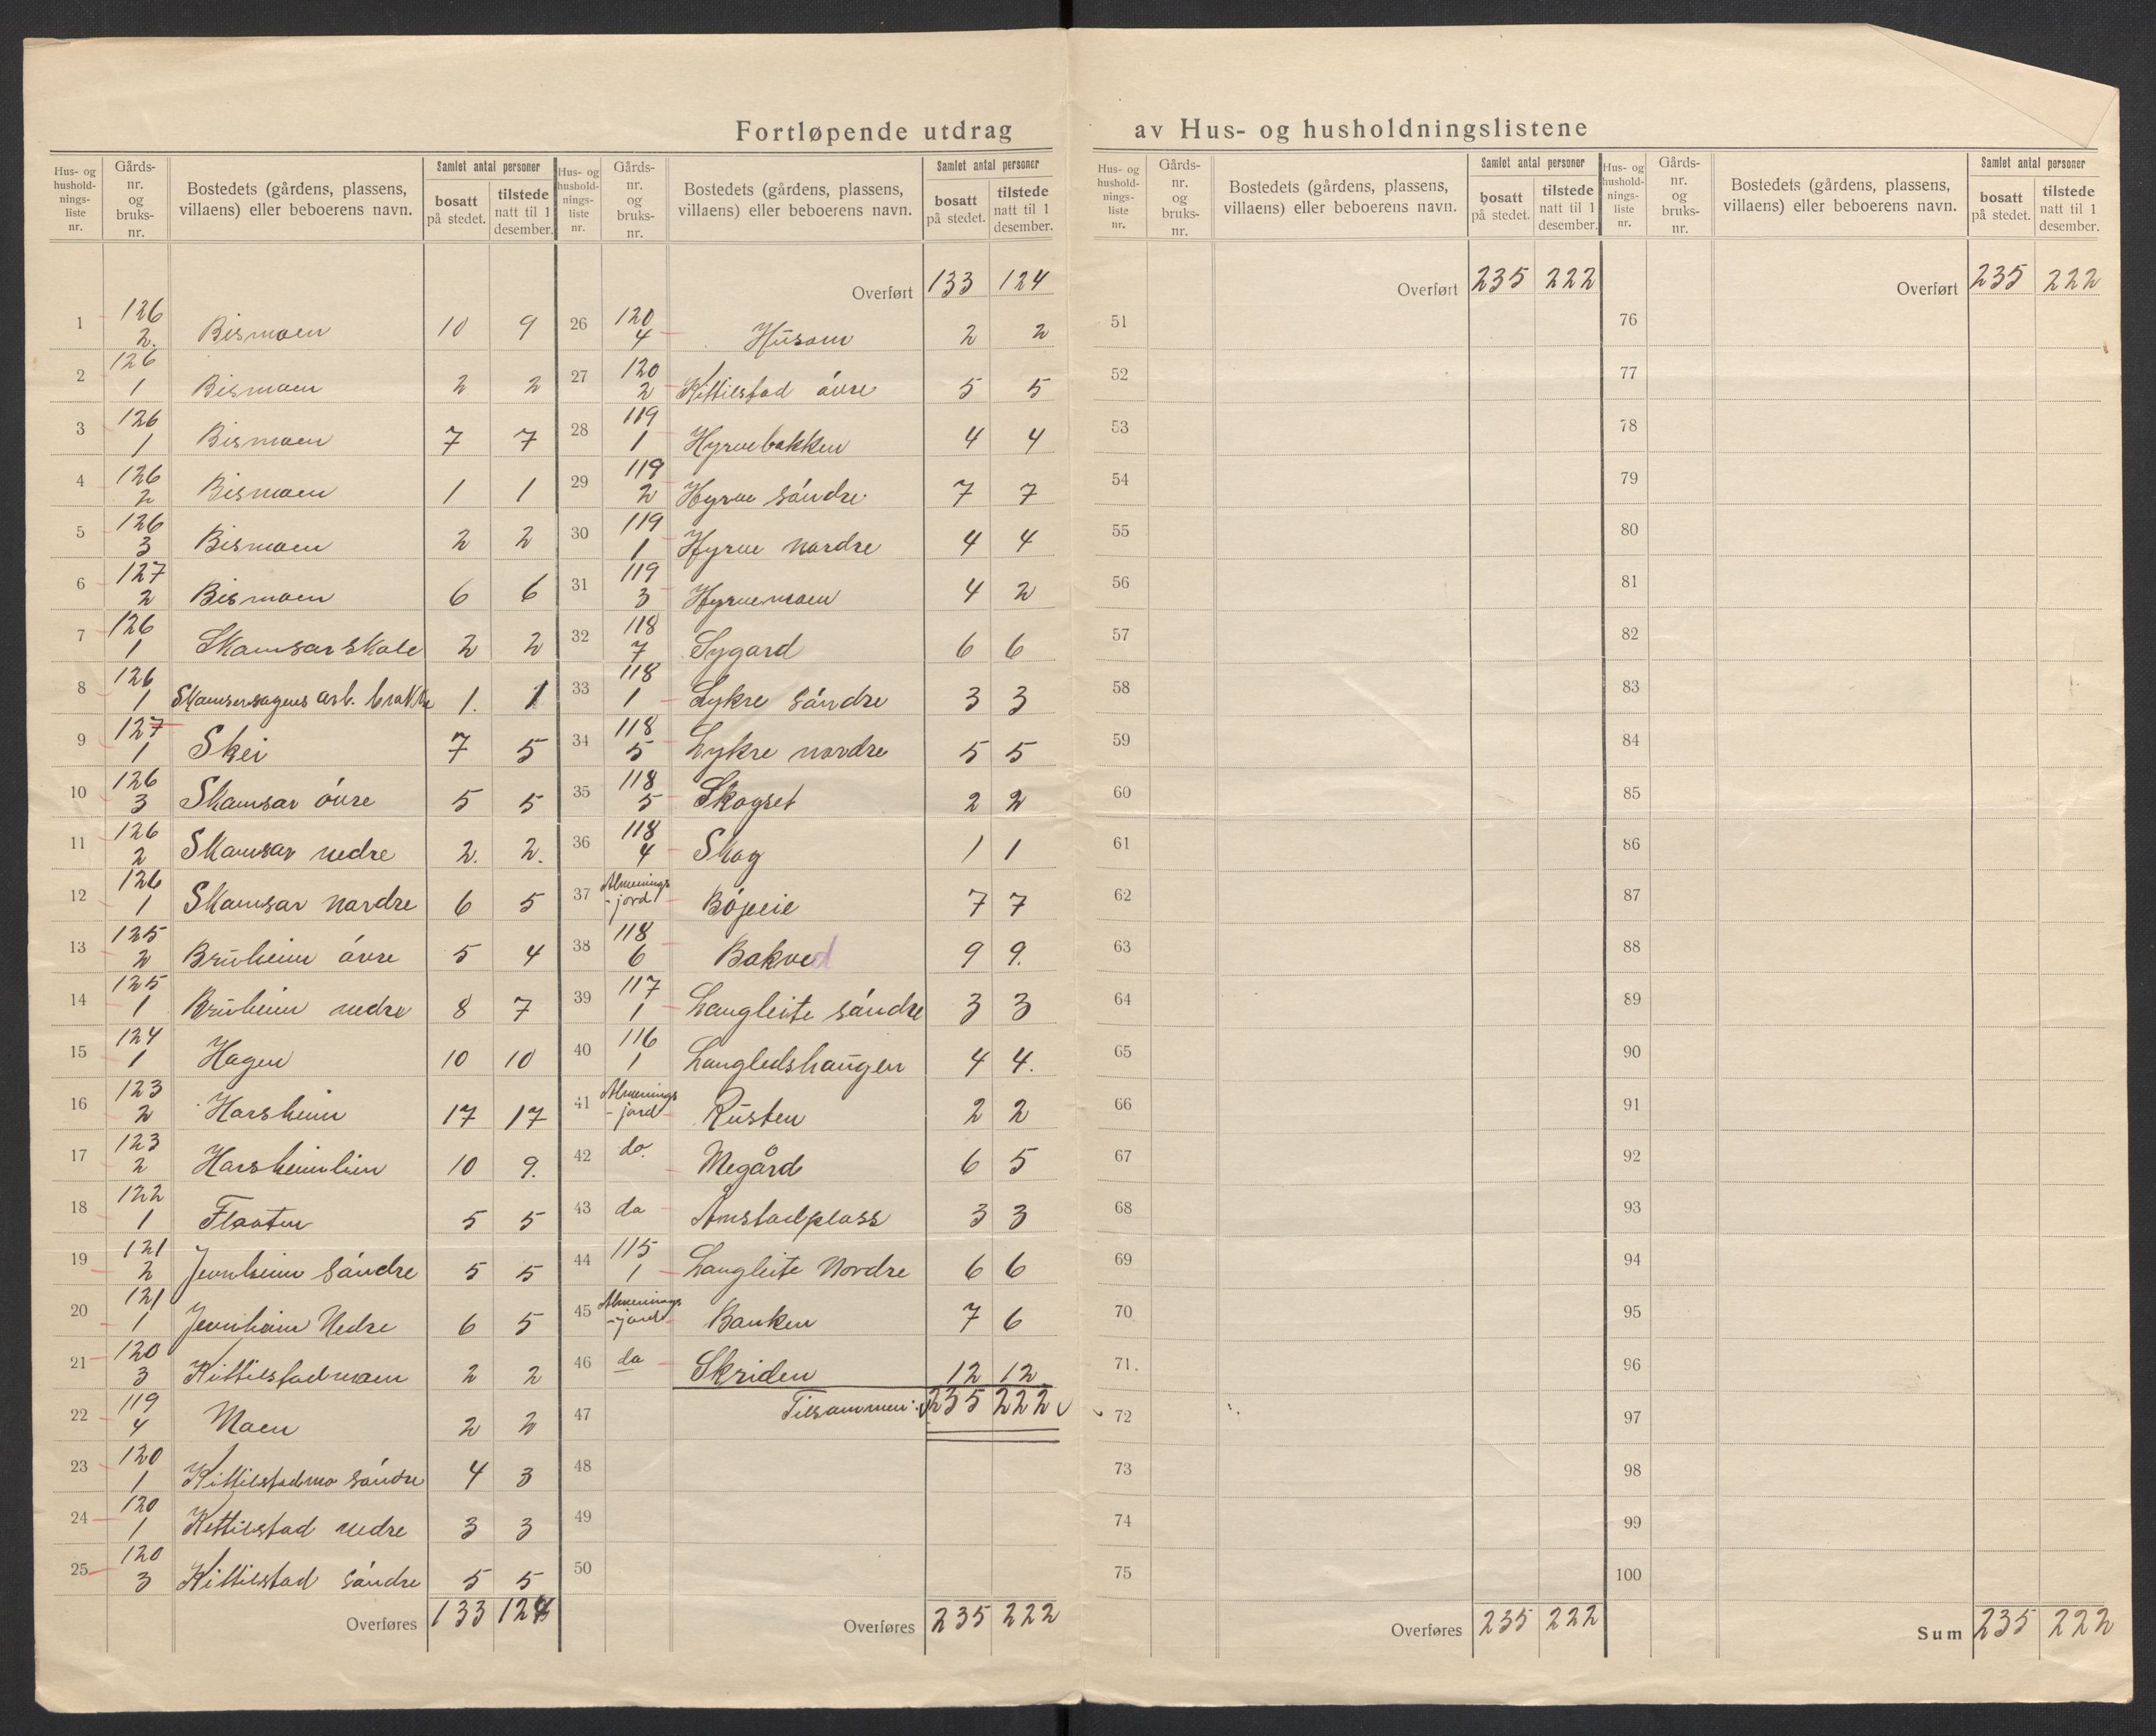 Fortløpende utdrag av Hus- og husholdningslistene
Hus- og husholdnings-liste nr. | Gårds-nr. og bruks-nr. | Bostedets (gårdens, plassens, villaens) eller beboerens navn. | Samlet antal personer | bosatt på stedet. | tilstede natt til 1 desember.
1 | 126 / 2. | Bismoen | 10 | 9
2 | 126 / 1 | Bismoen | 2 | 2
3 | 126 / 1 | Bismoen | 7 | 7
4 | 126 / 2 | Bismoen | 1 | 1
5 | 126 / 3 | Bismoen | 2 | 2
6 | 127 / 2 | Bismoen | 6 | 6
7 | 126 / 1 | Skamsarskale | 2 | 2
8 | 126 / 1 | Skamsarsagens arb. brakke | 1. | 1
9 | 127 / 1 | Skei | 7 | 5
10 | 126 / 3 | Skamsar óvre | 5 | 5
11 | 126 / 2 | Skamsar nedre | 2. | 2.
12 | 126 / 1 | Skamsar nordre | 6 | 5
13 | 125 / 2 | Bruheim óvre | 5 | 4
14 | 125 / 1 | Bruheim nedre | 8 | 7
15 | 124 / 1 | Hagen | 10 | 10
16 | 123 / 2 | Harsheim | 17 | 17
17 | 123 / 2 | Harsheimlien | 10 | 9.
18 | 122 / 1 | Flaaten | 5 | 5
19 | 121 / 2 | Jevnheim sóndre | 5 | 5
20 | 121 / 1 | Jevnheim Nedre | 6 | 5
21 | 120 / 3 | Kittilstadmoen | 2 | 2
22 | 119 / 4 | Moen | 2 | 2
23 | 120 / 1 | Kittilstadmo sóndre | 4 | 3
24 | 120 / 1 | Kittilstad nedre | 3 | 3
25 | 120 / 3 | Kittilstad sóndre | 5 | 5
Overføres | 133 | 124
Hus- og husholdnings-liste nr. | Gårds-nr. og bruks-nr. | Bostedets (gårdens, plassens, villaens) eller beboerens navn. | Samlet antal personer | bosatt på stedet. | tilstede natt til 1 desember.
Overført | 133 | 124
26 | 120 / 4 | Husom | 2 | 2
27 | 120 / 2 | Kittilstad óvre | 5 | 5
28 | 119 / 1 | Hyrvebakken | 4 | 4
29 | 119 / 2 | Hyrve sóndre | 7 | 7
30 | 119 / 1 | Hyrve nordre | 4 | 4
31 | 119 / 3 | Hyrvemoen | 4 | 2
32 | 118 / 7 | Sygard | 6 | 6
33 | 118 / 1 | Lykre sóndre | 3 | 3
34 | 118 / 5 | Lykre nordre | 5 | 5
35 | 118 / 5 | Skogset | 2 | 2
36 | 118 / 4 | Skog | 1 | 1
37 | Almenings-jord | Bójeie | 7 | 7
38 | 118 / 6 | Bakved | 9 | 9.
39 | 117 / 1 | Langleite sóndre | 3 | 3
40 | 116 / 1 | Langledshaugen | 4 | 4.
41 | Almenings-jord | Rusten | 2 | 2
42 | do. | Megård | 6 | 5
43 | do | Åmstadplass | 3 | 3
44 | 115 / 1 | Langleite Nordre | 6 | 6
45 | Almenings-jord | Banken | 7 | 6
46 | do | Skriden | 12 | 12
47 | Tilsammen: | 235 | 222
48
49
50
Overføres | 235 | 222
Hus- og husholdnings-liste nr. | Gårds-nr. og bruks-nr. | Bostedets (gårdens, plassens, villaens) eller beboerens navn. | Samlet antal personer | bosatt på stedet. | tilstede natt til 1 desember.
Overført | 235 | 222
51
52
53
54
55
56
57
58
59
60
61
62
63
64
65
66
67
68
69
70
71
72
73
74
75
Overføres | 235 | 222
Hus- og husholdnings-liste nr. | Gårds-nr. og bruks-nr. | Bostedets (gårdens, plassens, villaens) eller beboerens navn. | Samlet antal personer | bosatt på stedet. | tilstede natt til 1 desember.
Overført | 235 | 222
76
77
78
79
80
81
82
83
84
85
86
87
88
89
90
91
92
93
94
95
96
97
98
99
100
Sum | 235 | 222